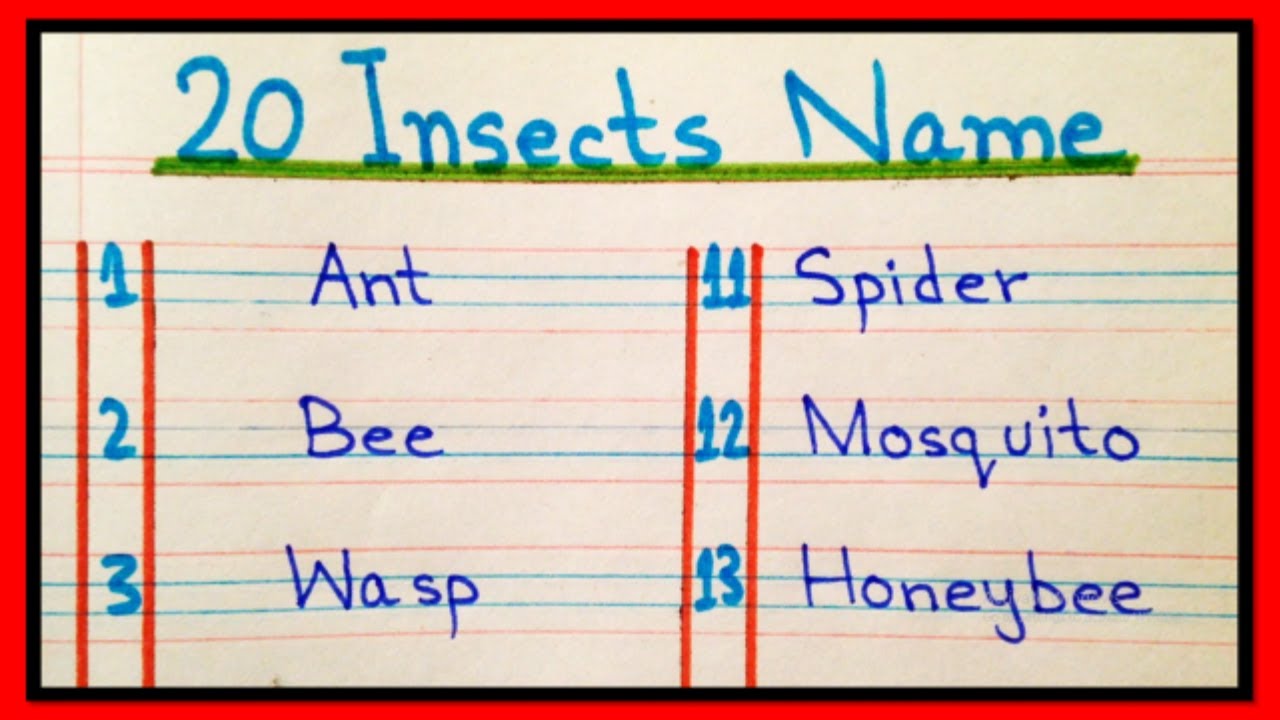 20 Insects Name
1 Ant 11 Spider
2 Bee 12 Mosquito
3 Wasp 13 Honeybee